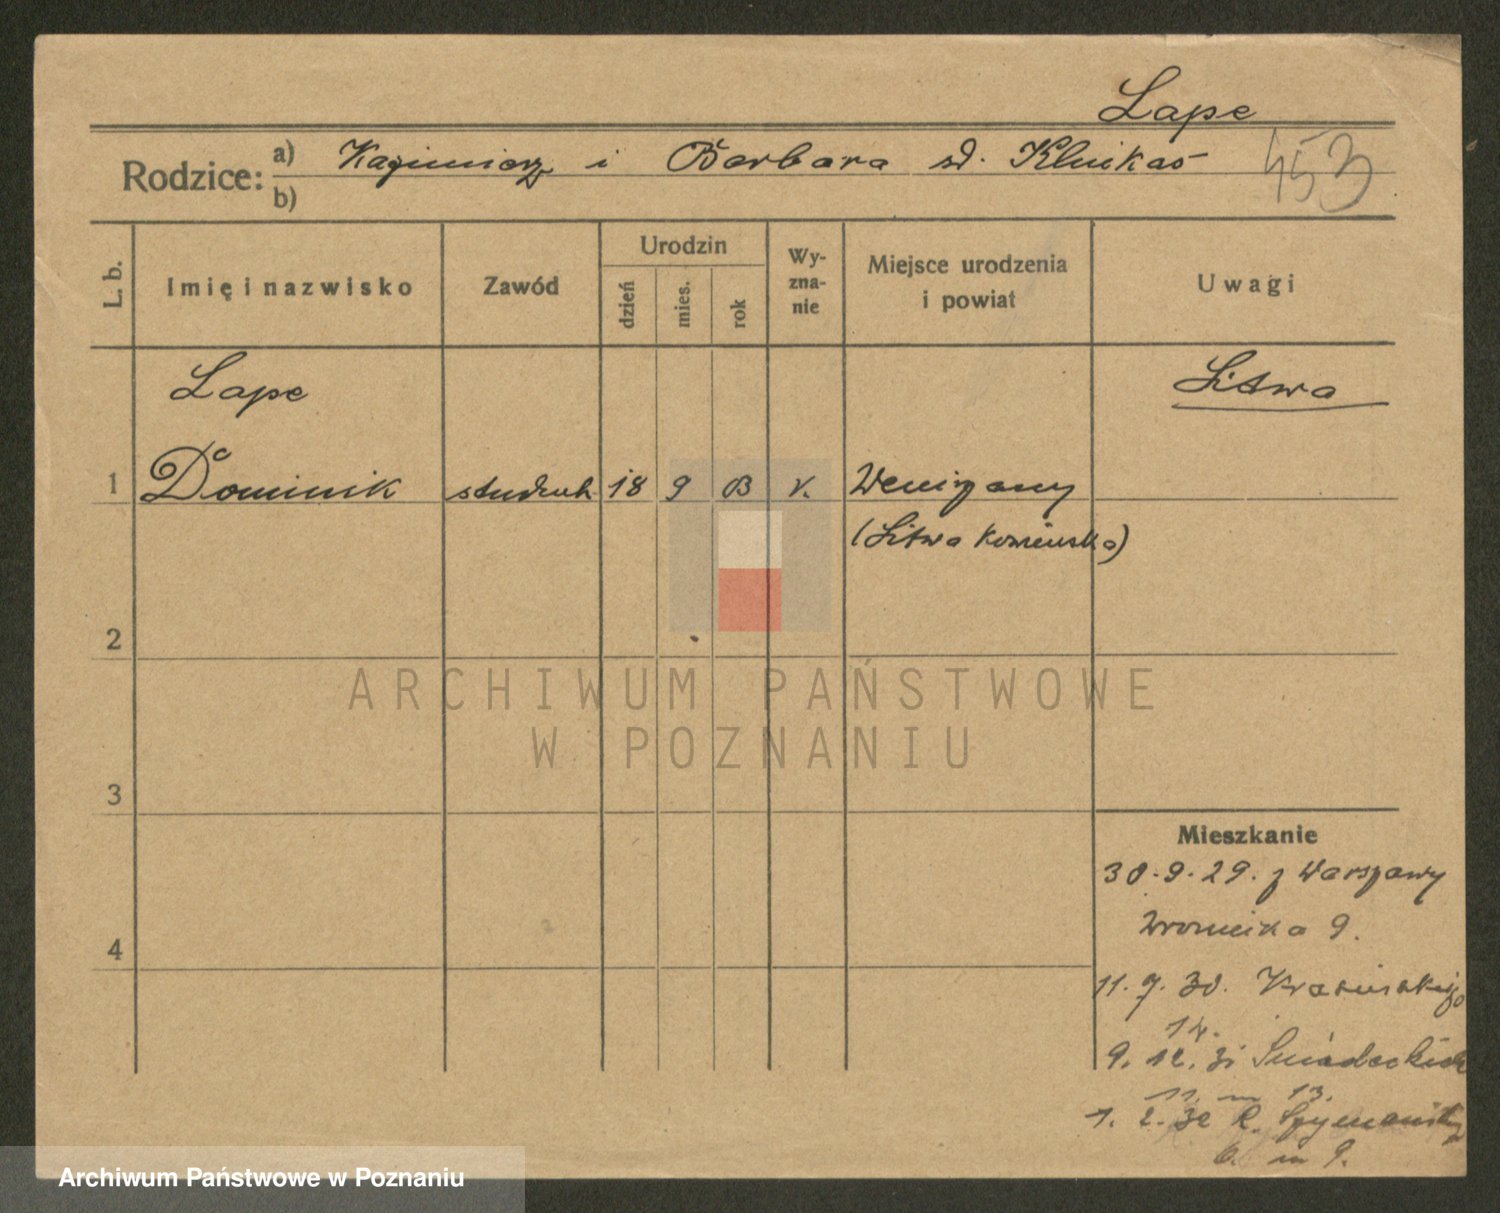 Lape
Rodzice: a) Kazimierz i Barbara zd. Kluikas
b)
453
L. b.
Imię i nazwisko
Zawód
Urodzin
dzień
mies.
rok
Wy-
zna-
nie
Miejsce urodzenia
i powiat
Uwagi
Lape
Litwa
1 Dominik student 18 9 03 k.
(Litwa Kowieńska)
2
ARCHIWUM PAŃSTWOWE
W POZNANIU
3
Mieszkanie
30.9.29. z Warszawy
Wroniecka 9.
4
11.7.30. Krasińskiego
14.
9.12.31 Śniadeckich
11. m 13.
1.2.32 R. Szymańskiego
6. m 9.
Archiwum Państwowe w Poznaniu